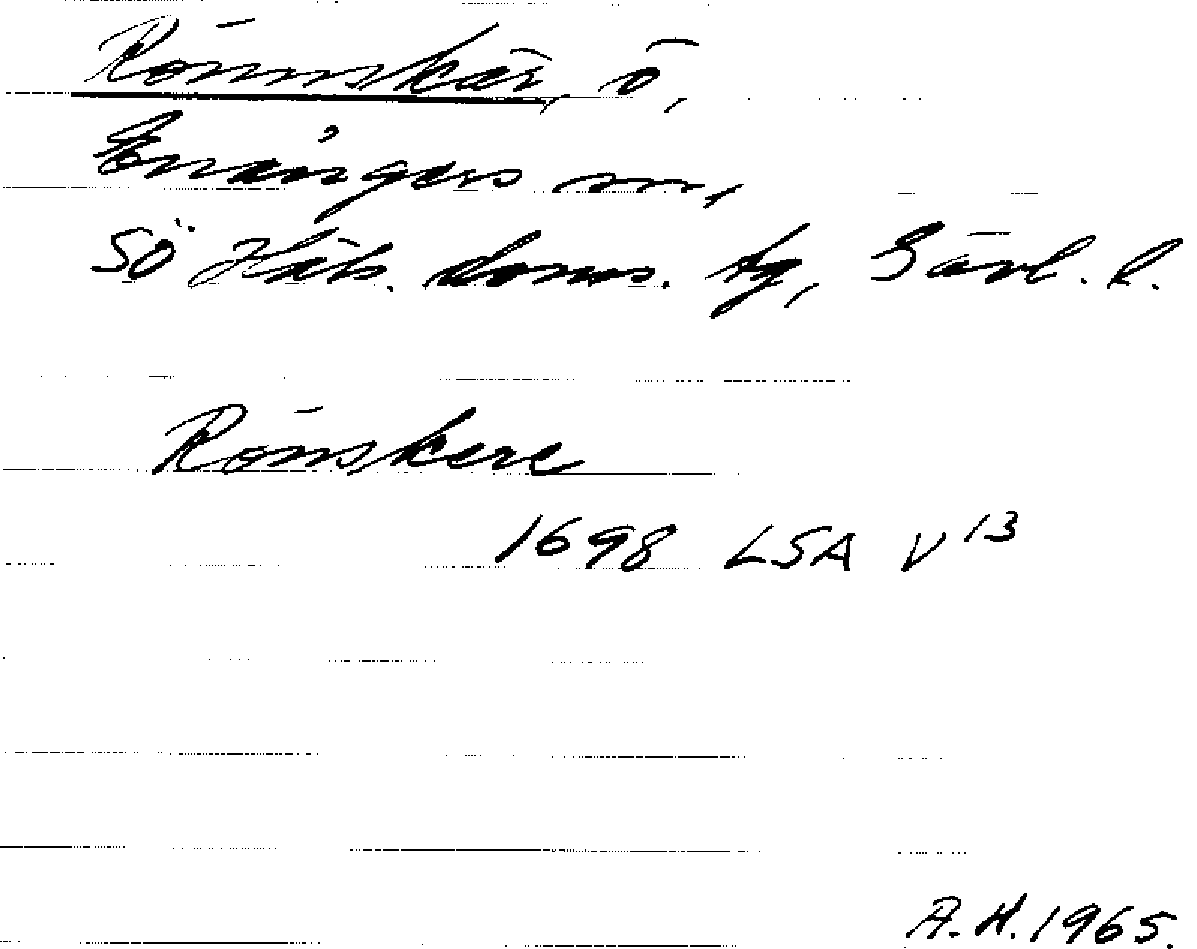 Rönnskär, ö,
Enångers sn,
Sö Häls. doms. tg, Gävl. l.
Rönskere
1698 LSA V 13
A.H. 1965.